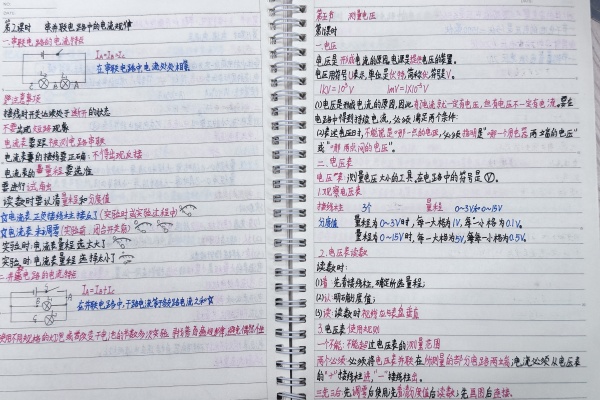 第2课时 串并联电路中的电流规律
一.串联电路的电流特征
IA=IB=IC
在串联电路中电流处处相等
要注意事项
接线时开关必须处于断开的状态
不要出现短路现象
电流表要跟被测电路串联
电流表的接线要正确,不得出现反接
电流表的量程要选准
要进行试触
读数时要认清量程和分度值
电流表正负接线柱接反了(实验时或实验过程中)
电流表未调零(实验前,闭合开关前)
实验时:电流表量程选大了
实验时:电流表量程选择小了
二.并联电路的电流特征
IA=IB+IC
在并联电路中,干路电流等于各支路电流之和
第五节 测量电压
第1课时
一.电压
电压是形成电流的原因,电源是提供电压的装置。
电压用符号U表示,单位是伏特,简称伏,符号是V。
1kV=10³V 1mV=1×10⁻³V
(1)电压是形成电流的原因,因此有电流就一定有电压,但有电压不一定有电流。要在
电路中得到持续电流,必须满足两个条件:
(2)表述电压时,不能说是"哪一点的电压",必须指明是"哪一个用电器两立端的电压"
或"哪两点间的电压"。
二.电压表
电压表:测量电压大小的工具,在电路中的符号是Ⓥ。
1.观察电压表
接线柱 3个 量程 0~3V和0~15V
分度值 量程为0~3V时,每一大格为1V,每一小格为0.1V。
量程为0~15V时,每一大格为5V,每一小格为0.5V。
2.电压表读数
读数时:
(1)看:先看接线柱,确定所选量程;
(2)认:明确分度值;
(3)读:读数时视线应与表盘垂直
3.电压表使用规则
一个不能:不能超过电压表的测量范围
两个必须:必须将电压表并联在所测量的部分电路两端;电流必须从电压表
的"+"接线柱进,"-"接线柱出。
三先三后:先调零后使用;先看清分度值后读数;先画图后连接。